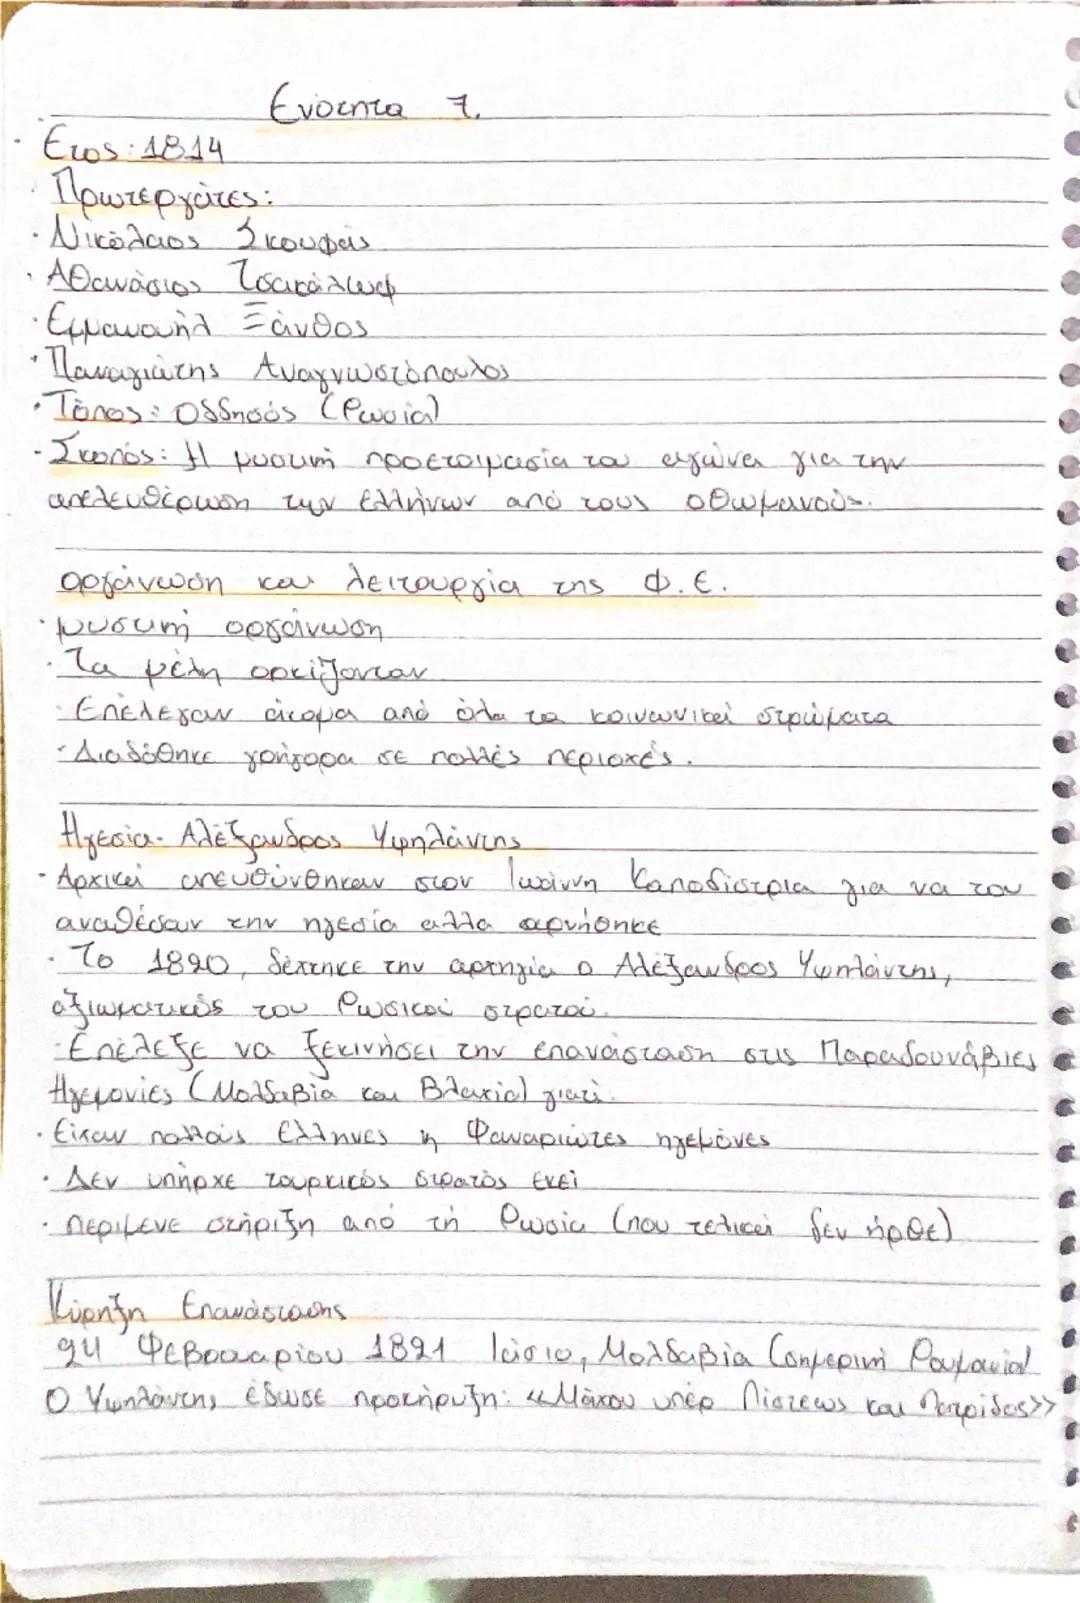 Ενότητα 7.
· Ετος: 1814
· Πρωτεργάτες:
· Νικόλαος Σκουφάς
· Αθανάσιος Τσακάλωφ
· Εμμανουήλ Ξάνθος
· Παναγιώτης Αναγνωστόπουλος
· Τόπος: Οδδησός (Ρωσία)
· Σκοπός: Η μυστική προετοιμασία του αγώνα για την
απελευθέρωση των Ελλήνων από τους οθωμανούς.
οργάνωση και λειτουργία της Φ.Ε.
· μυστική οργάνωση
· Τα μέλη ορκίζονταν
· Επέλεγαν άτομα από όλα τα κοινωνικά στρώματα
· Διαδόθηκε γρήγορα σε πολλές περιοχές.
Ηγεσία- Αλέξανδρος Υψηλάντης
· Αρχικά απευθύνθηκαν στον Ιωάννη Καποδίστρια για να του
αναθέσουν την ηγεσία αλλα αρνήθηκε
· Το 1820, δέχτηκε την αρχηγία ο Αλέξανδρος Υψηλάντης,
αξιωματικός του Ρωσικού στρατού.
· Επέλεξε να ξεκινήσει την επανάσταση στις Παραδουνάβιες
Ηγεμονίες (Μολδαβία και Βλαχία) γιατί:
· Είχαν πολλούς Ελληνες η Φαναριώτες ηγεμόνες
· Δεν υπήρχε τουρκικός στρατός εκεί
· περιμενε στήριξη από τη Ρωσία (που τελικά δεν ήρθε)
Κύρηξη Επανάστασης
24 Φεβρουαρίου 1821 Ιάσιο, Μολδαβία (σημερινή Ρουμανία)
Ο Υψηλάντης έδωσε προκήρυξη: «Μάχου υπέρ Πίστεως και Πατρίδος»